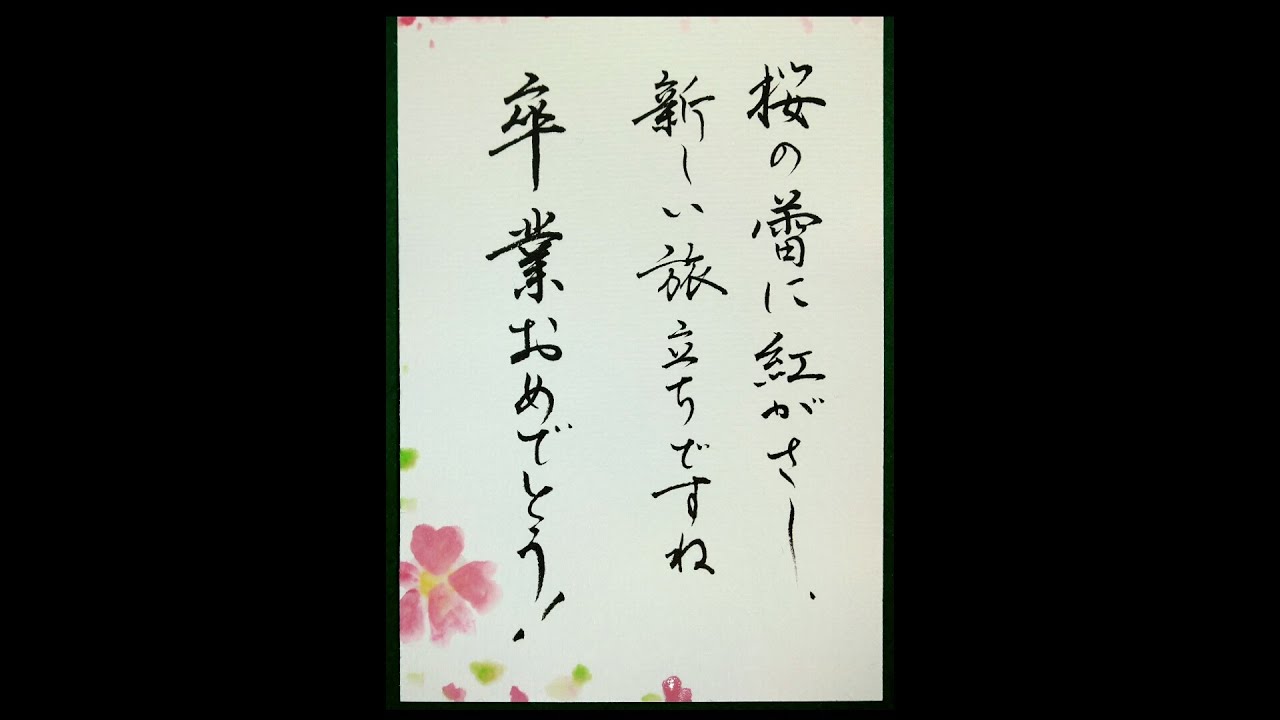 桜の蕾に紅がさし、
新しい旅立ちですね
卒業おめでとう!